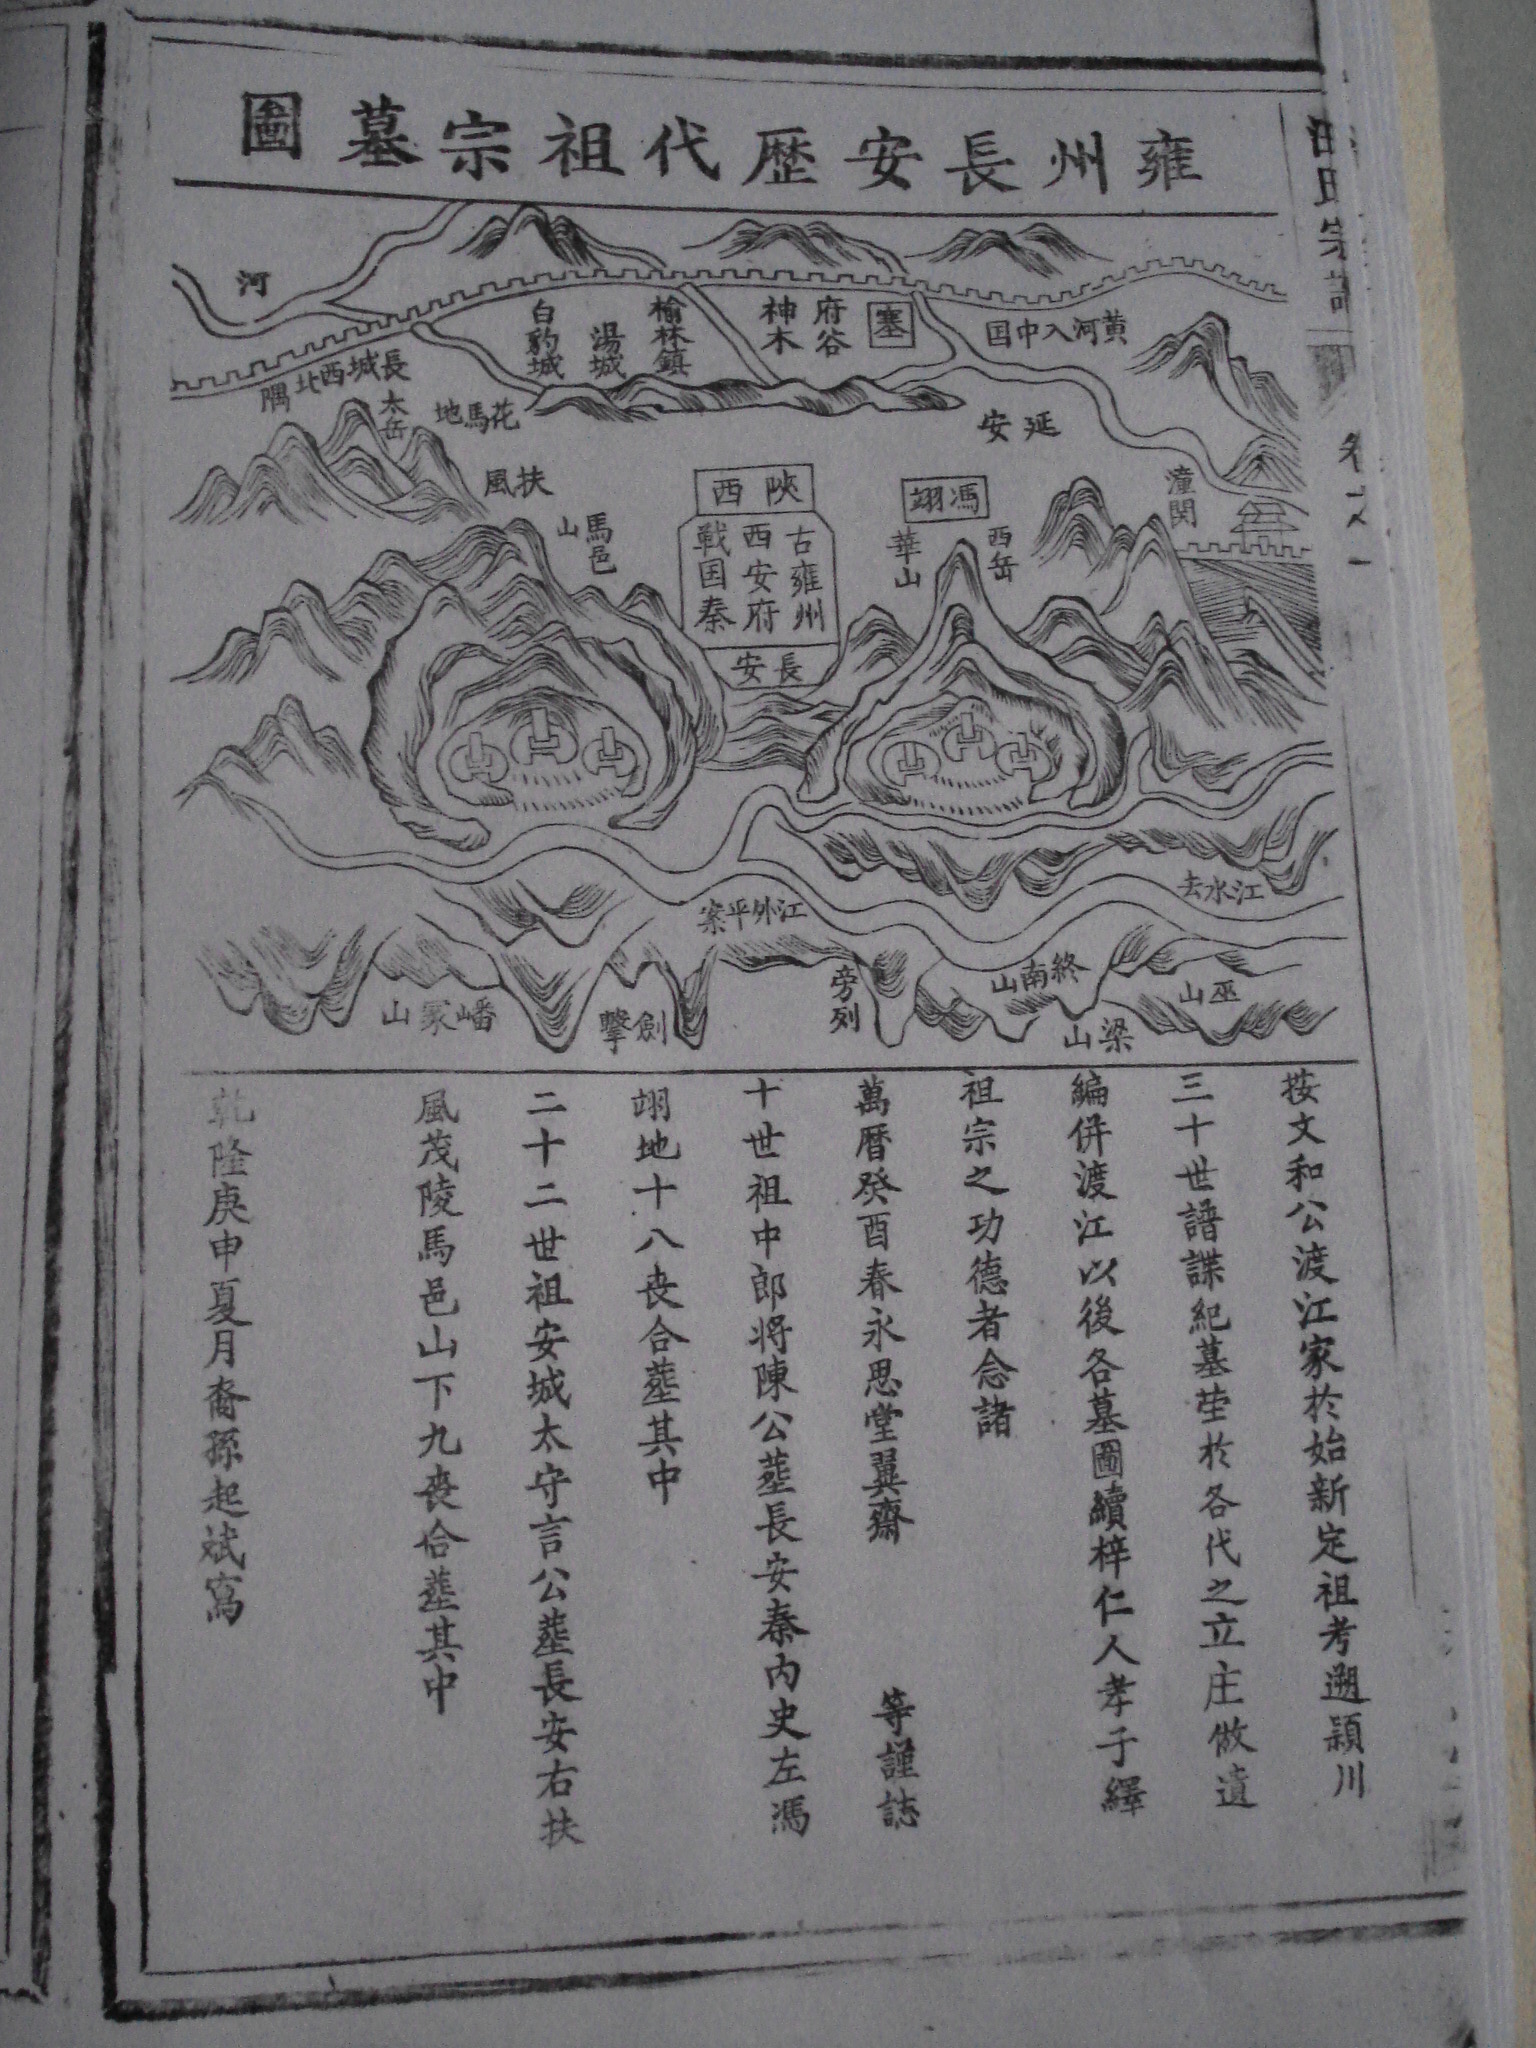 雍州長安歷代祖宗墓圖
河
長城西北隅
白豹城
湯城
榆林鎮
神木
府谷
塞
黄河入中国
太岳
花馬地
延安
扶風
馬邑山
陝西
古雍州
西安府
戰国秦
長安
馮翊
華山
西岳
潼関
江水去
江外平案
旁列
終南山
巫山
梁山
劍擊
嶓冢山
按文和公渡江家於始新定祖考遡潁川
三十世譜諜紀墓茔於各代之立庄倣遺
編併渡江以後各墓圖續梓仁人孝子繹
祖宗之功德者念諸
萬曆癸酉春永思堂翼齋 等謹誌
十世祖中郎將陳公塟長安秦内史左馮
翊地十八丧合塟其中
二十二世祖安城太守言公塟長安右扶
風茂陵馬邑山下九丧合塟其中
乾隆庚申夏月裔孫起斌寫